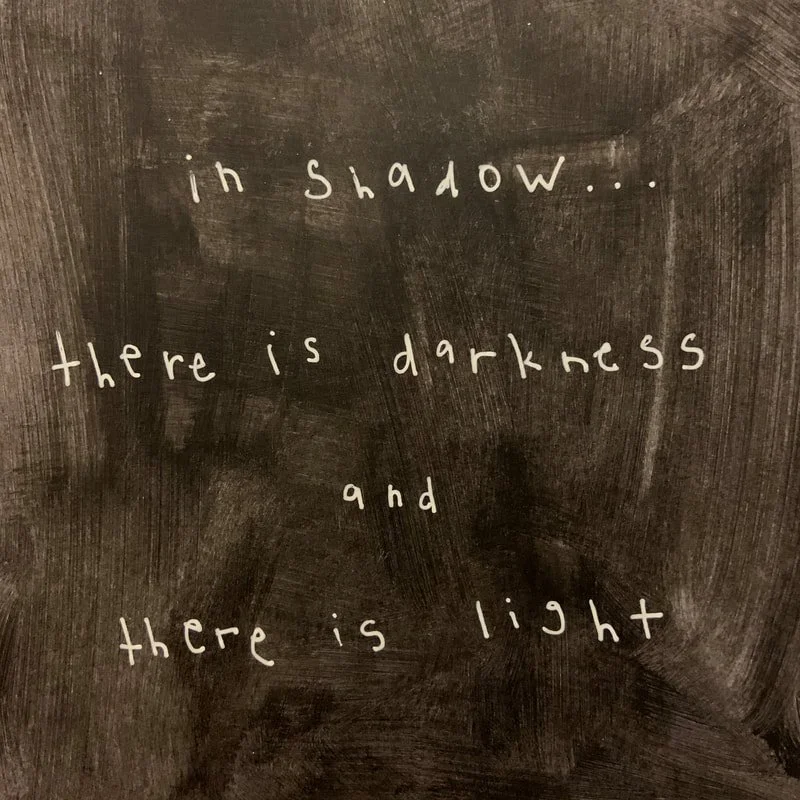 in shadow...
there is darkness
and
there is light